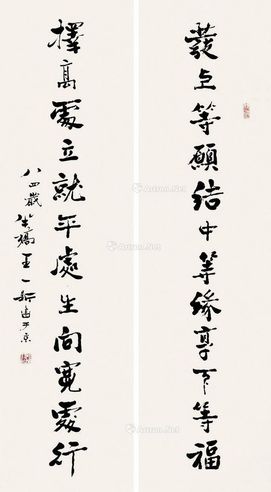 發上等願結中等緣享下等福
擇高處立就平處坐向寬處行
八四歲